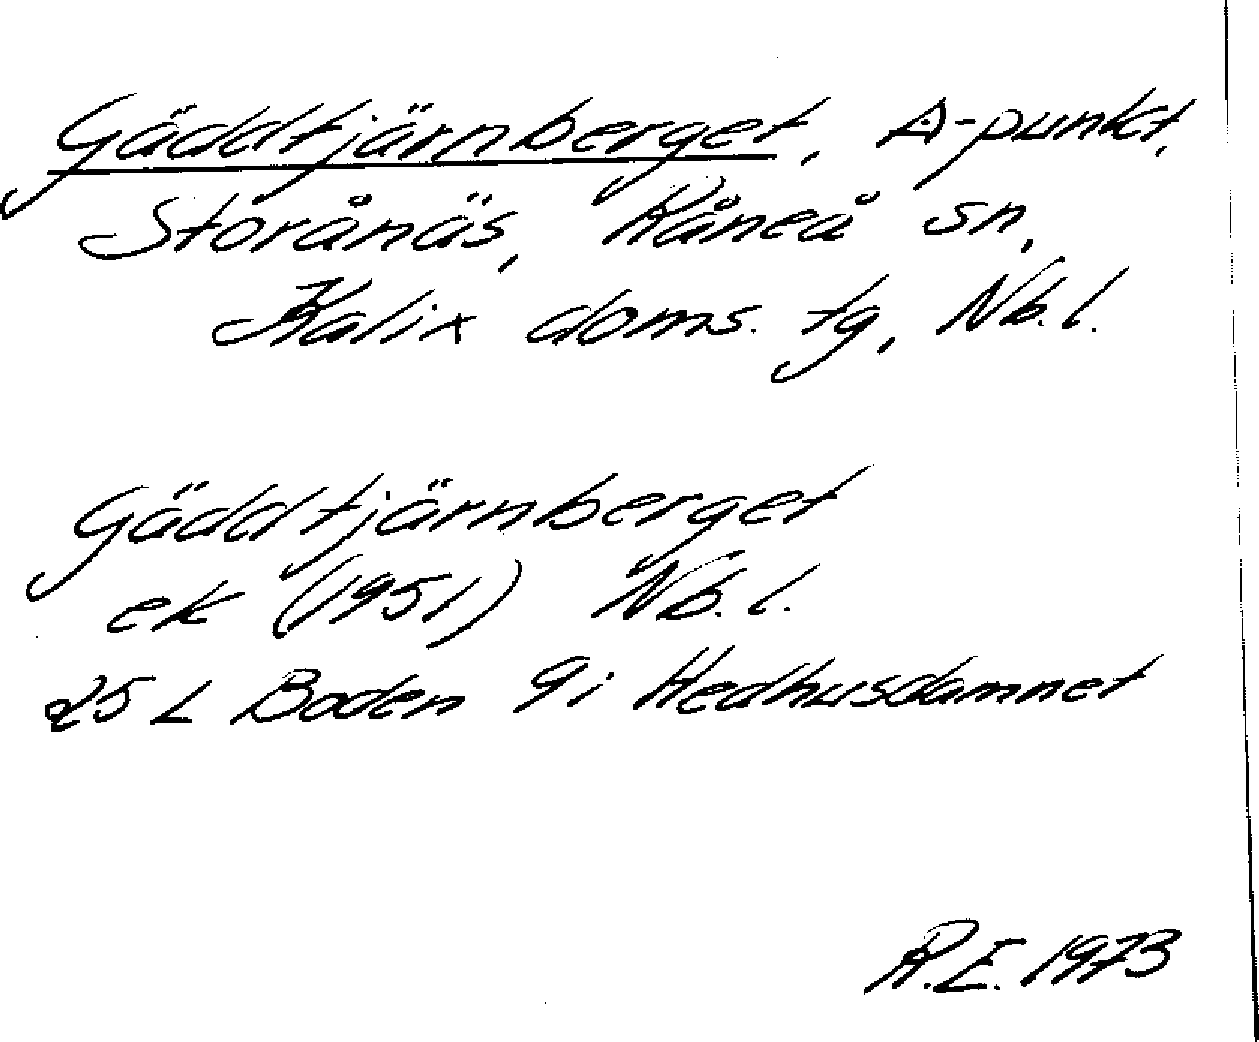 Gäddtjärnberget, A-punkt,
Storånäs, Råneå sn,
Kalix doms. tg, Nb. l.
Gäddtjärnberget
ek (1951) Nb. l.
25 L Boden 9i Hedhusdamnet
R.E. 1973